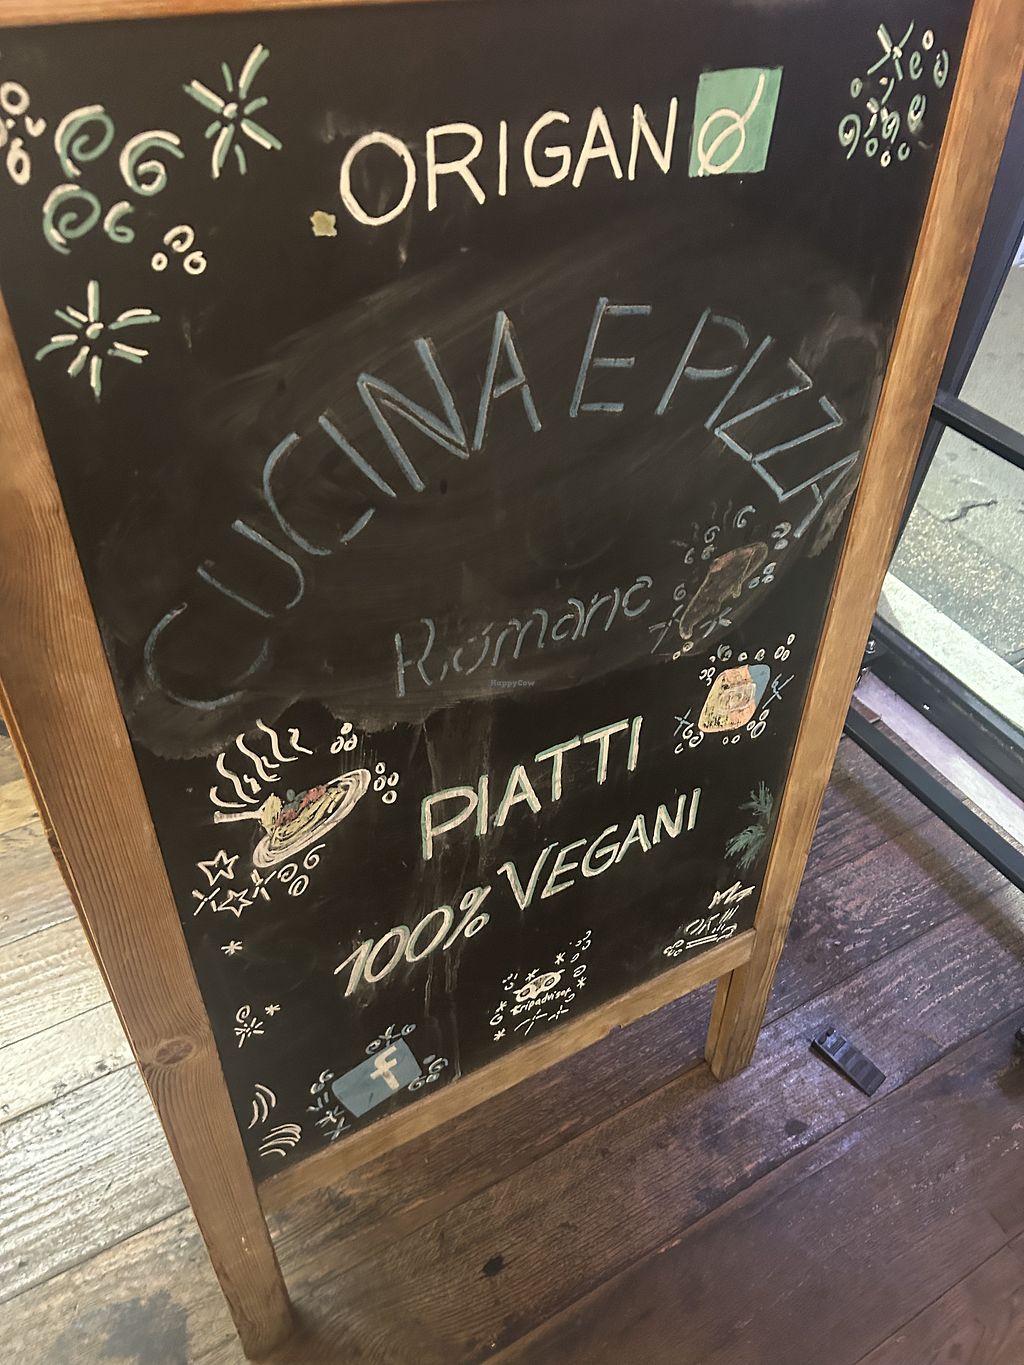 ORIGANO
CUCINA E PIZZA
Romane
HappyCow
PIATTI
100% VEGANI
tripadvisor
f